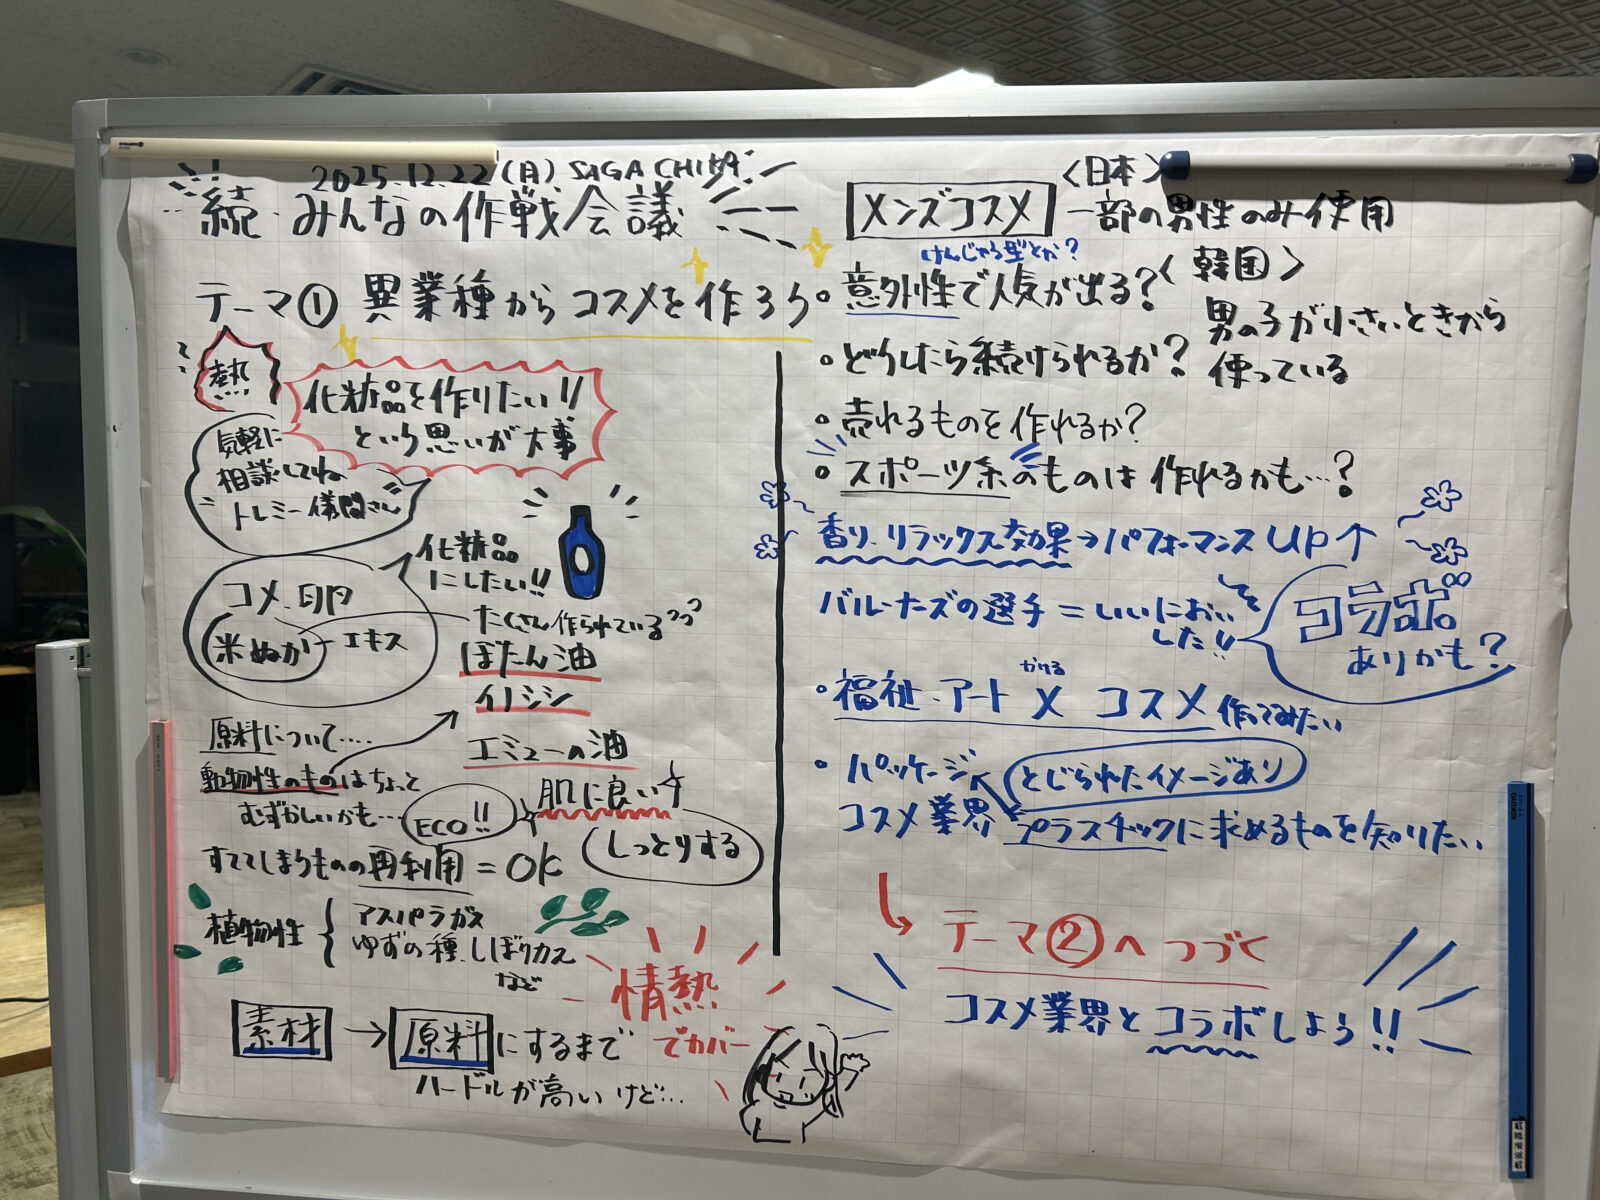 2025.12.22(月) SAGA CHIKA
続・みんなの作戦会議
テーマ① 異業種からコスメを作ろう
熱
化粧品を作りたい!!
という思いが大事
気軽に
相談してね
トレミー儀間さん
化粧品
にしたい!!
コメ、卵
米ぬか エキス
たくさん作られている
ぼたん油
イノシシ
エミューの油
原料について....
動物性のものはちょっと
むずかしいかも...
ECO!!
肌に良い
しっとりする
すててしまうものの再利用=OK
植物性
アスパラガス
ゆずの種、しぼりカス
など
素材→原料にするまで
ハードルが高いけど...
情熱
でカバー
メンズコスメ
<日本>
一部の男性のみ使用
<韓国>
男の子が小さいときから
使っている
けんじゃろ型とか?
・意外性で人気が出る?
・どうしたら続けられるか?
・売れるものを作れるか?
・スポーツ系のものは作れるかも...?
香り、リラックス効果→パフォーマンスUP↑
バルーナーズの選手=いいにおい
した!!
コラボ
ありかも?
・福祉、アート×コスメ作ってみたい
かける
・パッケージ
とじられたイメージあり
コスメ業界
プラスチックに求めるものを知りたい
テーマ②へつづく
コスメ業界とコラボしよう!!